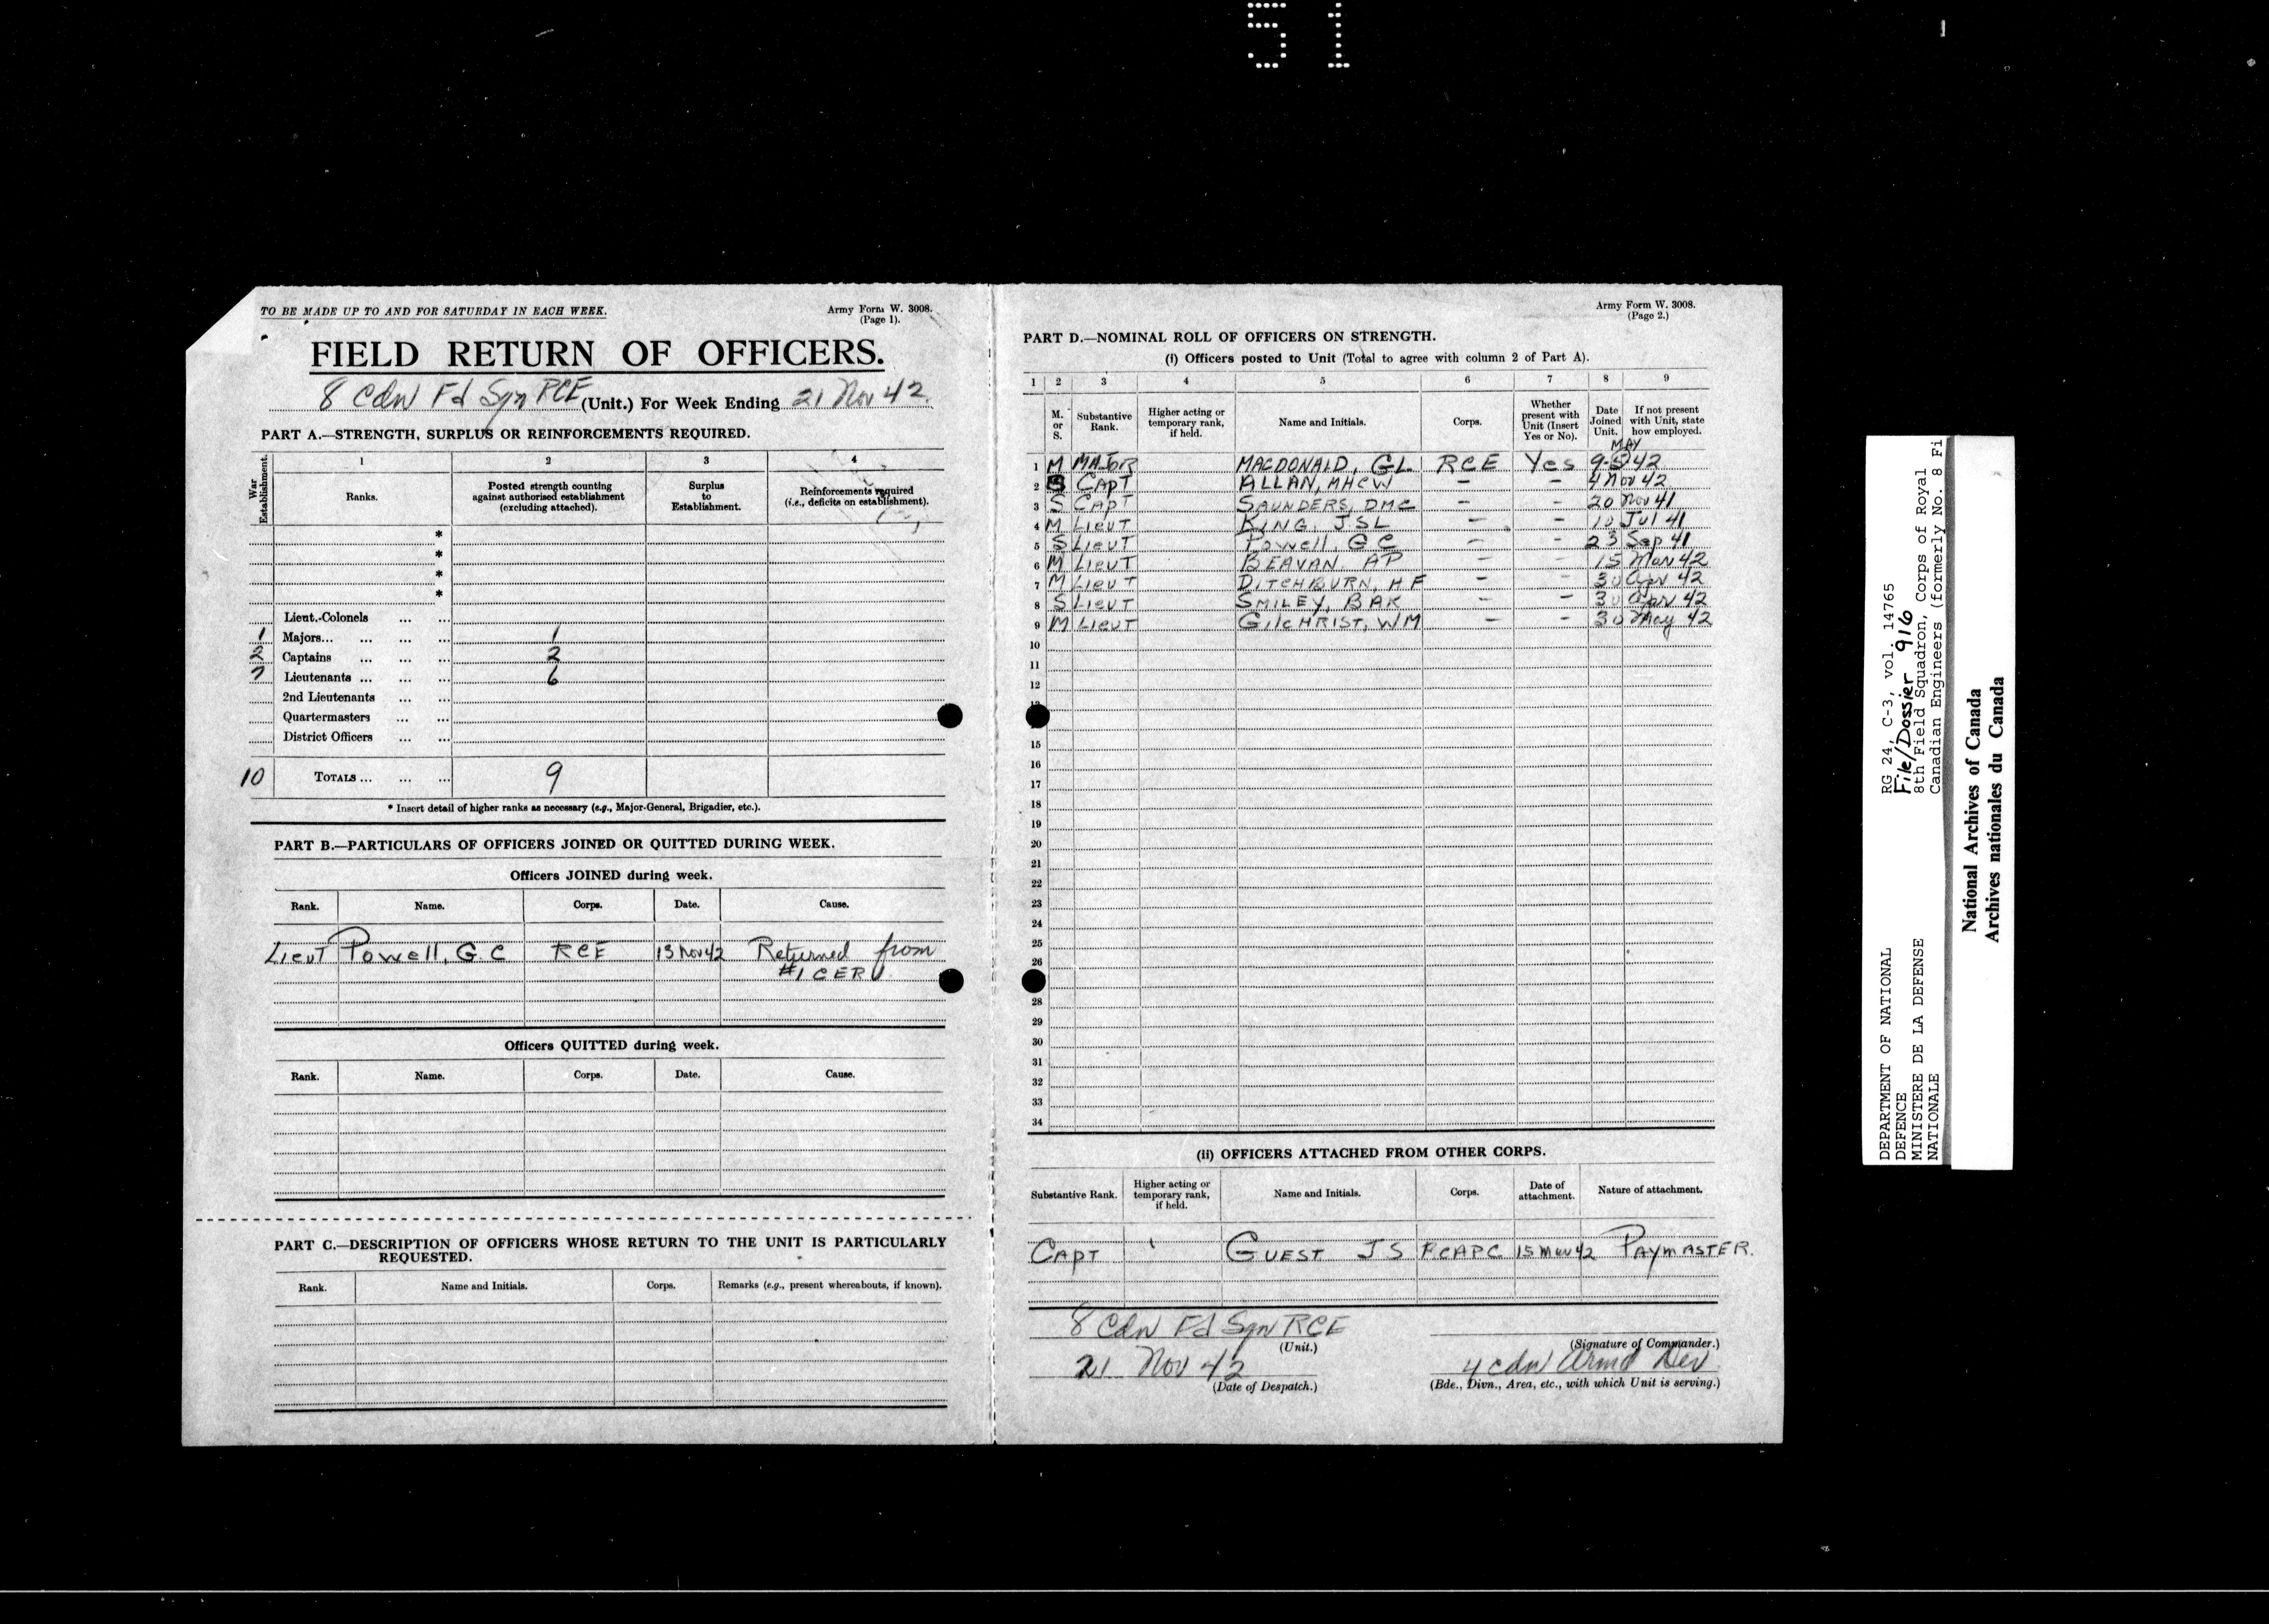 51
TO BE MADE UP TO AND FOR SATURDAY IN EACH WEEK.
Army Form W. 3008.
(Page 1).
FIELD RETURN OF OFFICERS.
8 Cdn Fd Sqn RCE (Unit.) For Week Ending 21 Nov 42.
PART A.—STRENGTH, SURPLUS OR REINFORCEMENTS REQUIRED.
War Establishment.
1 2 3 4
Ranks. Posted strength counting against authorised establishment (excluding attached). Surplus to Establishment. Reinforcements required (i.e., deficits on establishment).
*
*
*
*
Lieut.-Colonels ... ...
1 Majors... ... ... ... 1
2 Captains ... ... ... 2
7 Lieutenants ... ... ... 6
2nd Lieutenants ... ...
Quartermasters ... ...
District Officers ... ...
10 TOTALS ... ... ... 9
* Insert detail of higher ranks as necessary (e.g., Major-General, Brigadier, etc.).
PART B.—PARTICULARS OF OFFICERS JOINED OR QUITTED DURING WEEK.
Officers JOINED during week.
Rank. Name. Corps. Date. Cause.
Lieut Powell, G.C RCE 13 Nov 42 Returned from
#1 CERU
Officers QUITTED during week.
Rank. Name. Corps. Date. Cause.
PART C.—DESCRIPTION OF OFFICERS WHOSE RETURN TO THE UNIT IS PARTICULARLY
REQUESTED.
Rank. Name and Initials. Corps. Remarks (e.g., present whereabouts, if known).
Army Form W. 3008.
(Page 2.)
PART D.—NOMINAL ROLL OF OFFICERS ON STRENGTH.
(i) Officers posted to Unit (Total to agree with column 2 of Part A).
1 2 3 4 5 6 7 8 9
M. or S. Substantive Rank. Higher acting or temporary rank, if held. Name and Initials. Corps. Whether present with Unit (Insert Yes or No). Date Joined Unit. If not present with Unit, state how employed.
MAY
1 M MAJOR MACDONALD, GL RCE Yes 9-5-42
2 S CAPT ALLAN, MHCW - - 4 Nov 42
3 S CAPT SAUNDERS, DMC - - 20 Nov 41
4 M Lieut KING, JSL - - 10 Jul 41
5 S Lieut Powell, GC - - 23 Sep 41
6 M Lieut BEAVAN AP - - 15 Mar 42
7 M Lieut DITCHBURN, HF - - 30 Apr 42
8 S Lieut SMILEY, BAK - - 30 Apr 42
9 M Lieut GILCHRIST, WM - - 30 May 42
10
11
12
15
16
17
18
19
20
21
22
23
24
25
26
28
29
30
31
32
33
34
(ii) OFFICERS ATTACHED FROM OTHER CORPS.
Substantive Rank. Higher acting or temporary rank, if held. Name and Initials. Corps. Date of attachment. Nature of attachment.
CAPT GUEST JS RCAPC 15 Mar 42 PAYMASTER.
8 Cdn Fd Sqn RCE
(Unit.)
(Signature of Commander.)
21 Nov 42
(Date of Despatch.)
4 Cdn Armd Div
(Bde., Divn., Area, etc., with which Unit is serving.)
DEPARTMENT OF NATIONAL
DEFENCE
MINISTERE DE LA DEFENSE
NATIONALE
RG 24, C-3, vol. 14765
File/Dossier 916
8th Field Squadron, Corps of Royal
Canadian Engineers (formerly No. 8 Fi
National Archives of Canada
Archives nationales du Canada